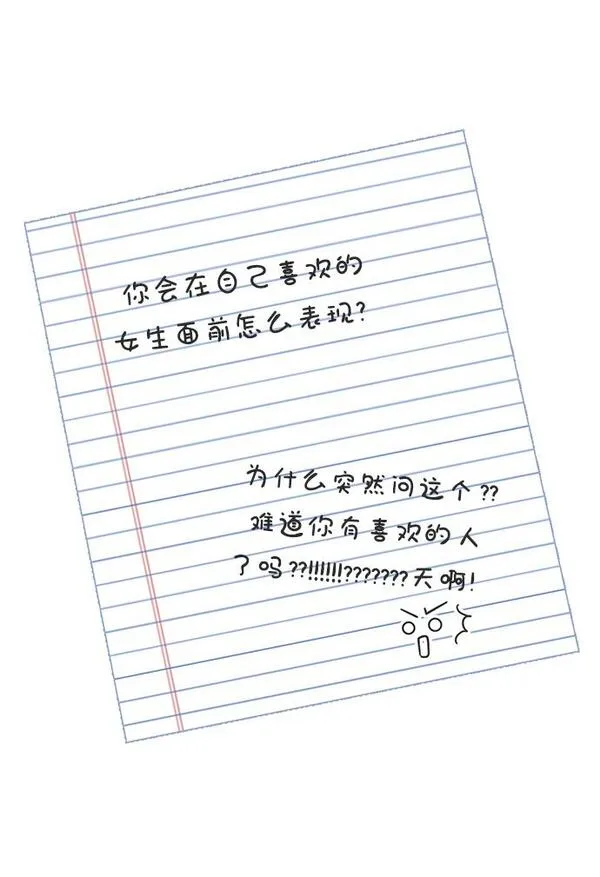 你会在自己喜欢的
女生面前怎么表现?
为什么突然问这个??
难道你有喜欢的人
了吗??!!!!!!???????天啊!